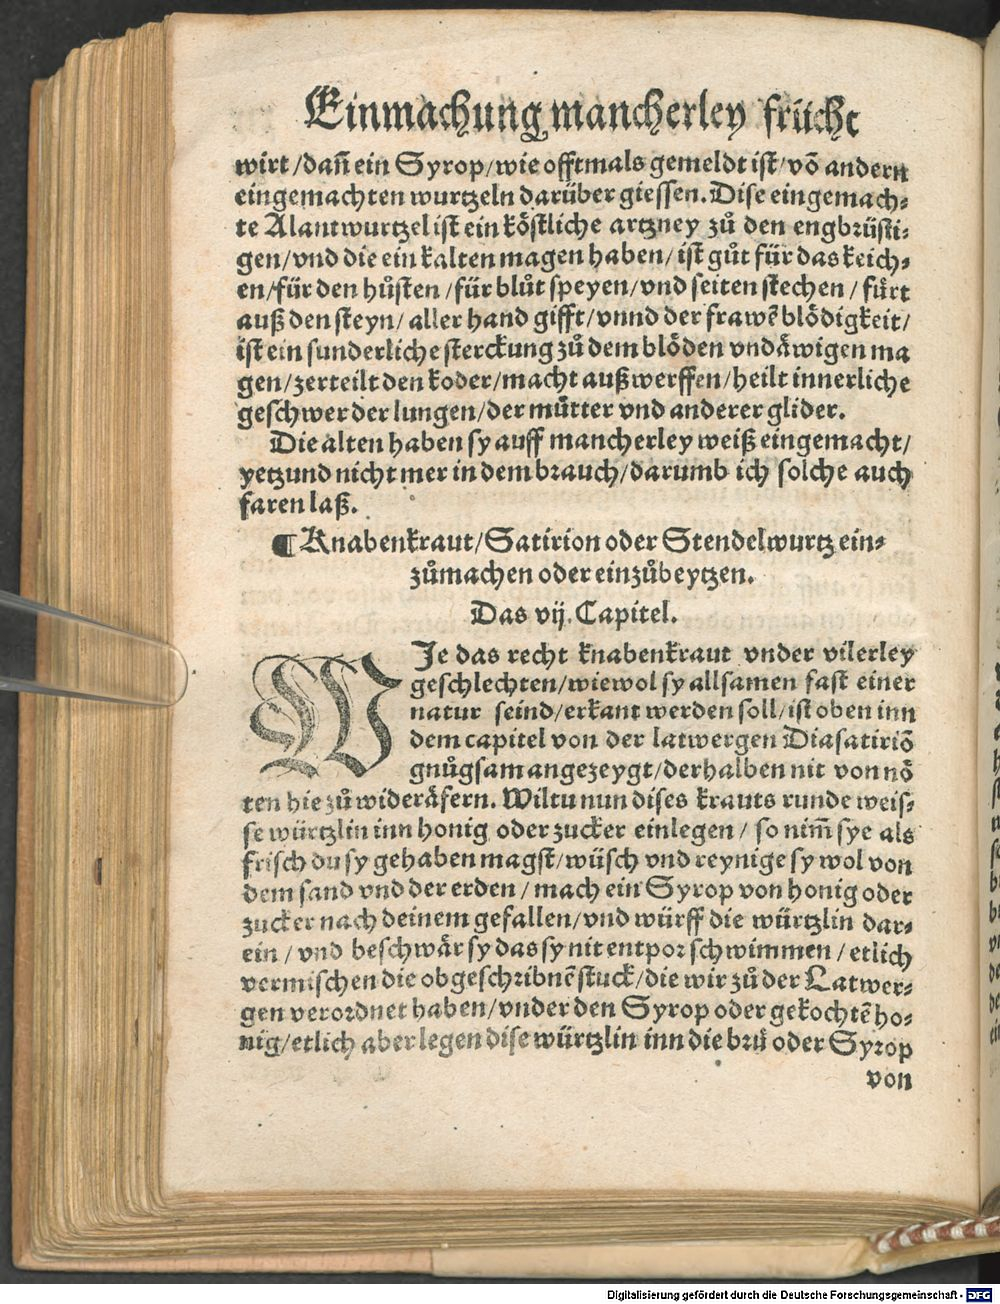 Einmachung mancherley frücht
wirt/dañ ein Syrop/wie offtmals gemeldt ist/võ andern
eingemachten wurtzeln darüber giessen. Dise eingemach⸗
te Alantwurtzel ist ein köstliche artzney zů den engbrüsti⸗
gen/vnd die ein kalten magen haben/ ist gůt für das keich⸗
en/für den hůsten /für blůt speyen/vnd seiten stechen / fürt
auß den steyn/ aller hand gifft/vnnd der frawẽ blödigkeit/
ist ein sunderliche sterckung zů dem blöden vnd äwigen ma
gen/zerteilt den koder/macht außwerffen/heilt innerliche
geschwer der lungen/der můtter vnd anderer glider.
Die alten haben sy auff mancherley weiß eingemacht/
yetzund nicht mer in dem brauch/darumb ich solche auch
faren laß.
¶ Knabenkraut/Satirion oder Stendelwurtz ein⸗
zůmachen oder einzůbeytzen.
Das vij. Capitel.
WIe das recht knabenkraut vnder vilerley
geschlechten/wiewol sy allsamen fast einer
natur seind/erkant werden soll/ist oben inn
dem capitel von der latwergen Diasatiriõ
gnůgsam angezeygt/derhalben nit von nö
ten hie zů wideräfern. Wiltu nun dises krauts runde weis⸗
se würtzlin inn honig oder zucker einlegen/ so nim̃ sye als
frisch du sy gehaben magst/wüsch vnd reynige sy wol von
dem sand vnd der erden/ mach ein Syrop von honig oder
zucker nach deinem gefallen/vnd würff die würtzlin dar⸗
ein / vnd beschwär sy das sy nit entpor schwimmen / etlich
vermischen die obgeschribnẽ stuck/die wir zů der Latwer⸗
gen verordnet haben/vnder den Syrop oder gekochtẽ ho⸗
nig/etlich aber legen dise würtzlin inn die brü oder Syrop
von
Digitalisierung gefördert durch die Deutsche Forschungsgemeinschaft - DFG